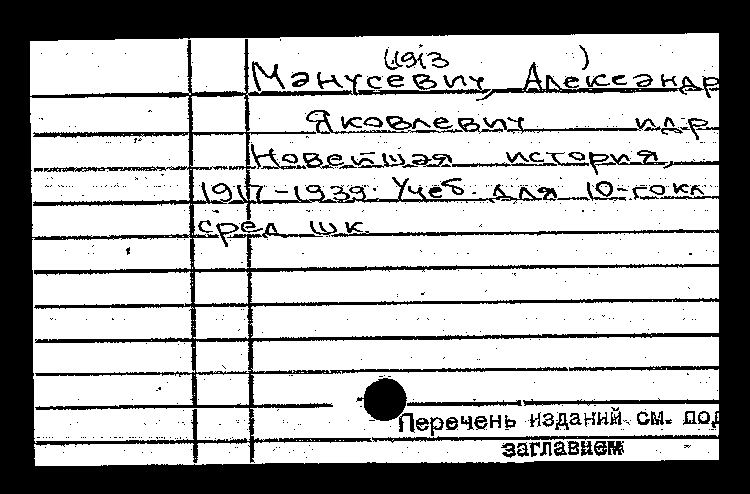 (1913 )
Манусевич, Александр
Яковлевич и др
Новейшая история,
1917-1939. Учеб. для 10-го кл
сред шк.
Перечень изданий см. под
заглавием